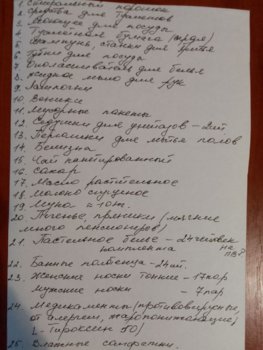 1. Стиральный порошок
2. Средства для туалетов
3. Моющее для посуды
4. Туалетная бумага
5. Шампунь, станки для бритья
6. Губки для посуды
7. для белья
8. Жидкое мыло для рук
9. Лампочки
10. Веники
11. Мусорные пакеты
12. для унитазов - 2шт.
13. для мытья полов
14. Белизна
15. Чай пакетированный
16. Сахар
17. Масло растительное
18. Молоко сгущеное
19. Мука - 10кг.
20. Печенье, пряники (мягкие
много пенсионеров)
21. Постельное белье - 24
комплекта на
22. Банные полотенца - 24шт.
23. Женские носки тонкие - 17пар
Мужские носки - 7пар.
24. Медикаменты (противовирусные,
от аллергии, жаропонижающие,
L-Тироксин 50)
25. Влажные салфетки.